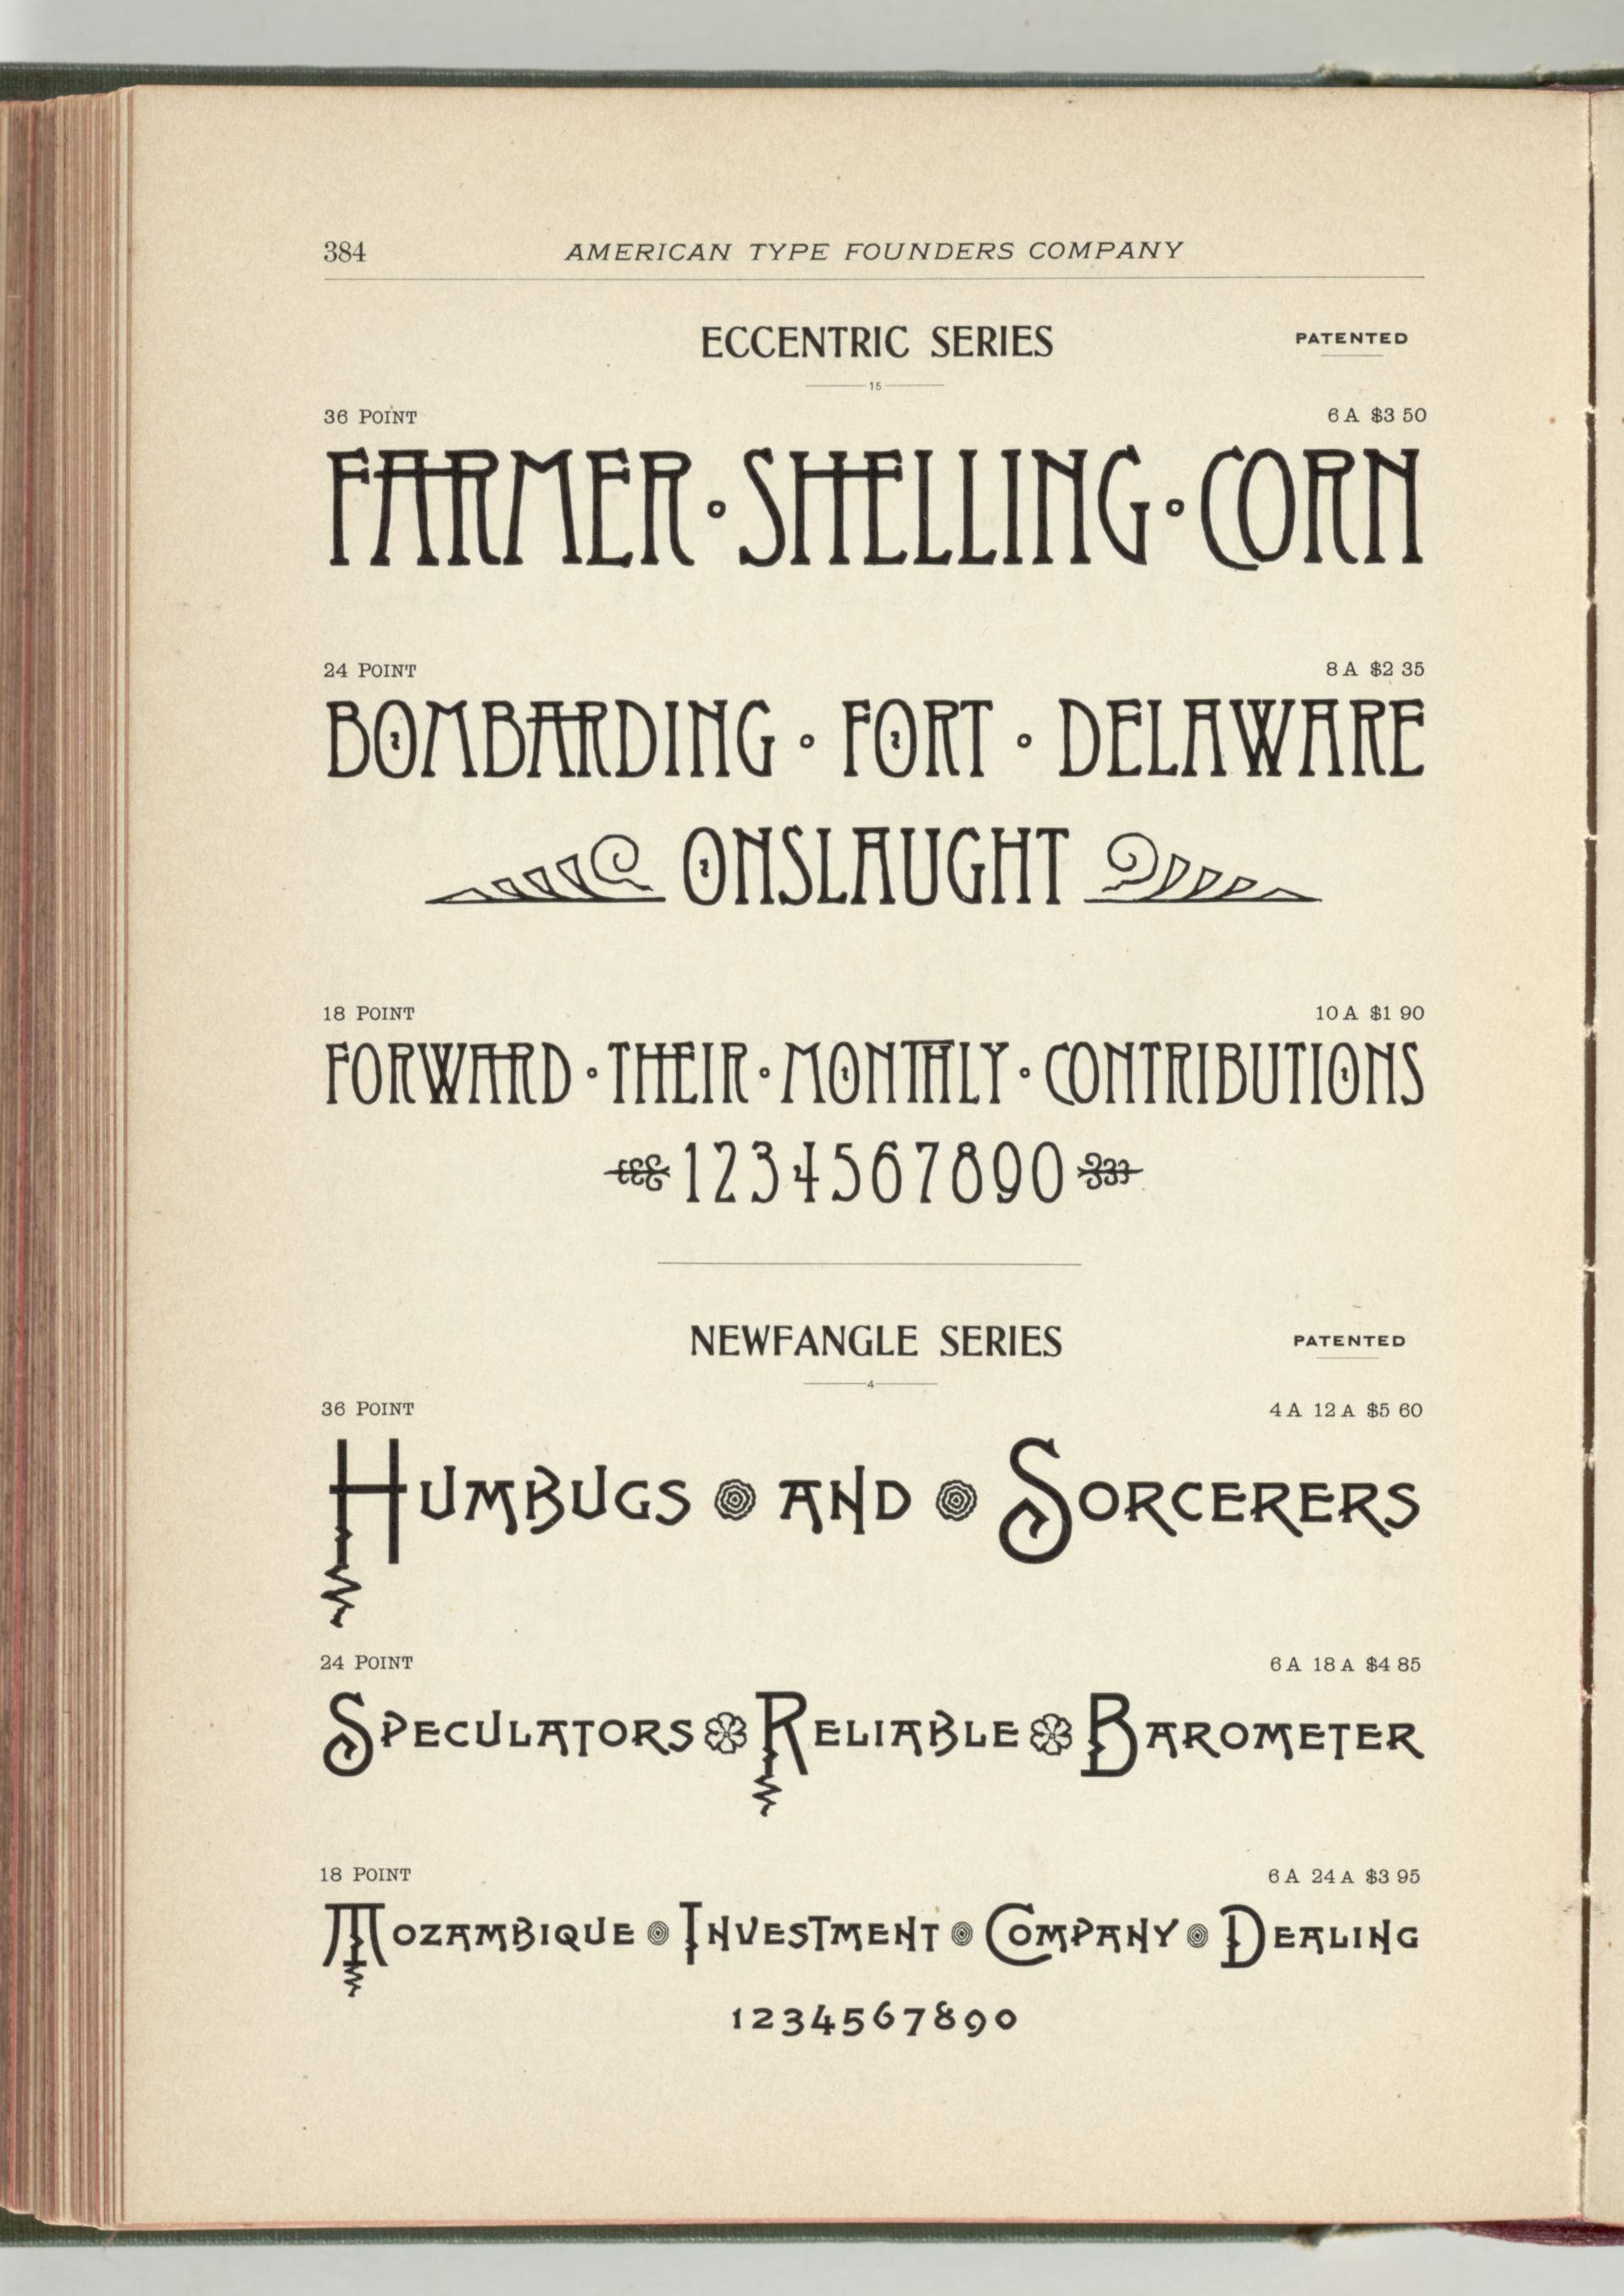 384 AMERICAN TYPE FOUNDERS COMPANY
ECCENTRIC SERIES PATENTED
15
36 POINT 6 A $3 50
FARMER • SHELLING • CORN
24 POINT 8 A $2 35
BOMBARDING • FORT • DELAWARE
ONSLAUGHT
18 POINT 10 A $1 90
FORWARD • THEIR • MONTHLY • CONTRIBUTIONS
1234567890
NEWFANGLE SERIES PATENTED
4
36 POINT 4 A 12 A $5 60
HUMBUGS AND SORCERERS
24 POINT 6 A 18 A $4 85
SPECULATORS RELIABLE BAROMETER
18 POINT 6 A 24 A $3 95
MOZAMBIQUE INVESTMENT COMPANY DEALING
1234567890